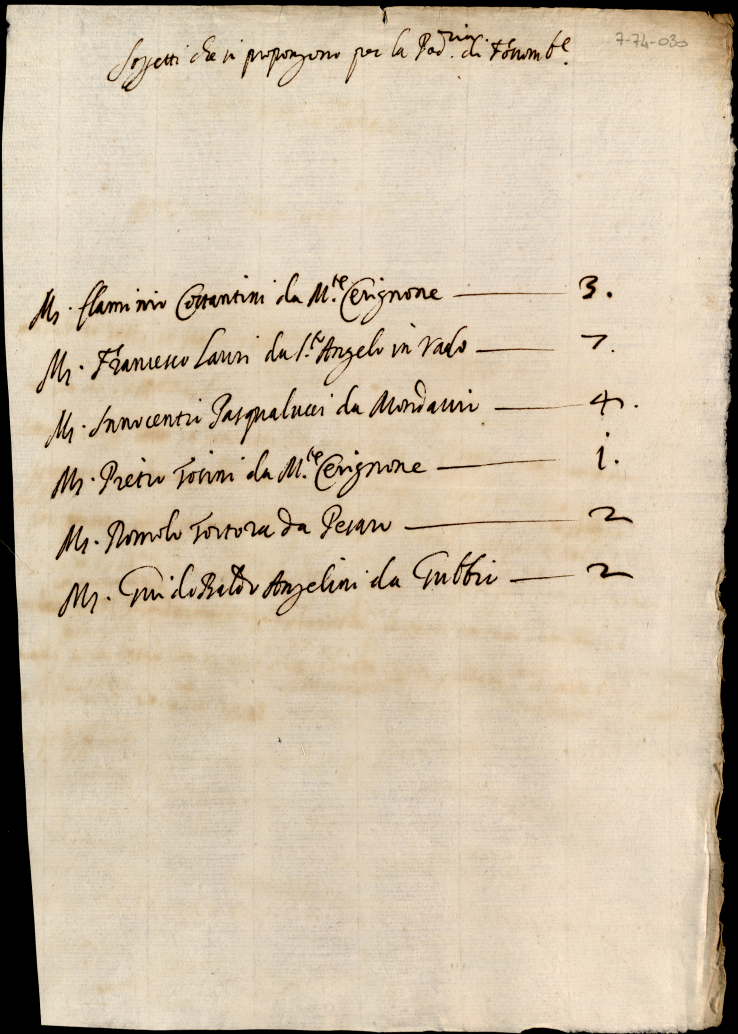 7-74-030
Soggetti che si propongono per la Pod.ria di Fossomb.e
Mr. Flaminio Costantini da M.te Cerignone — 3.
Mr. Francesco Lauri da S.t Angelo in Vado — 7.
Mr. Innocentio Pasqualucci da Mondavio — 4.
Mr. Pietro Tosini da M.te Cerignone — 1.
Mr. Romolo Tortora da Pesaro — 2
Mr. Guido Baldo Angelini da Gubbio — 2